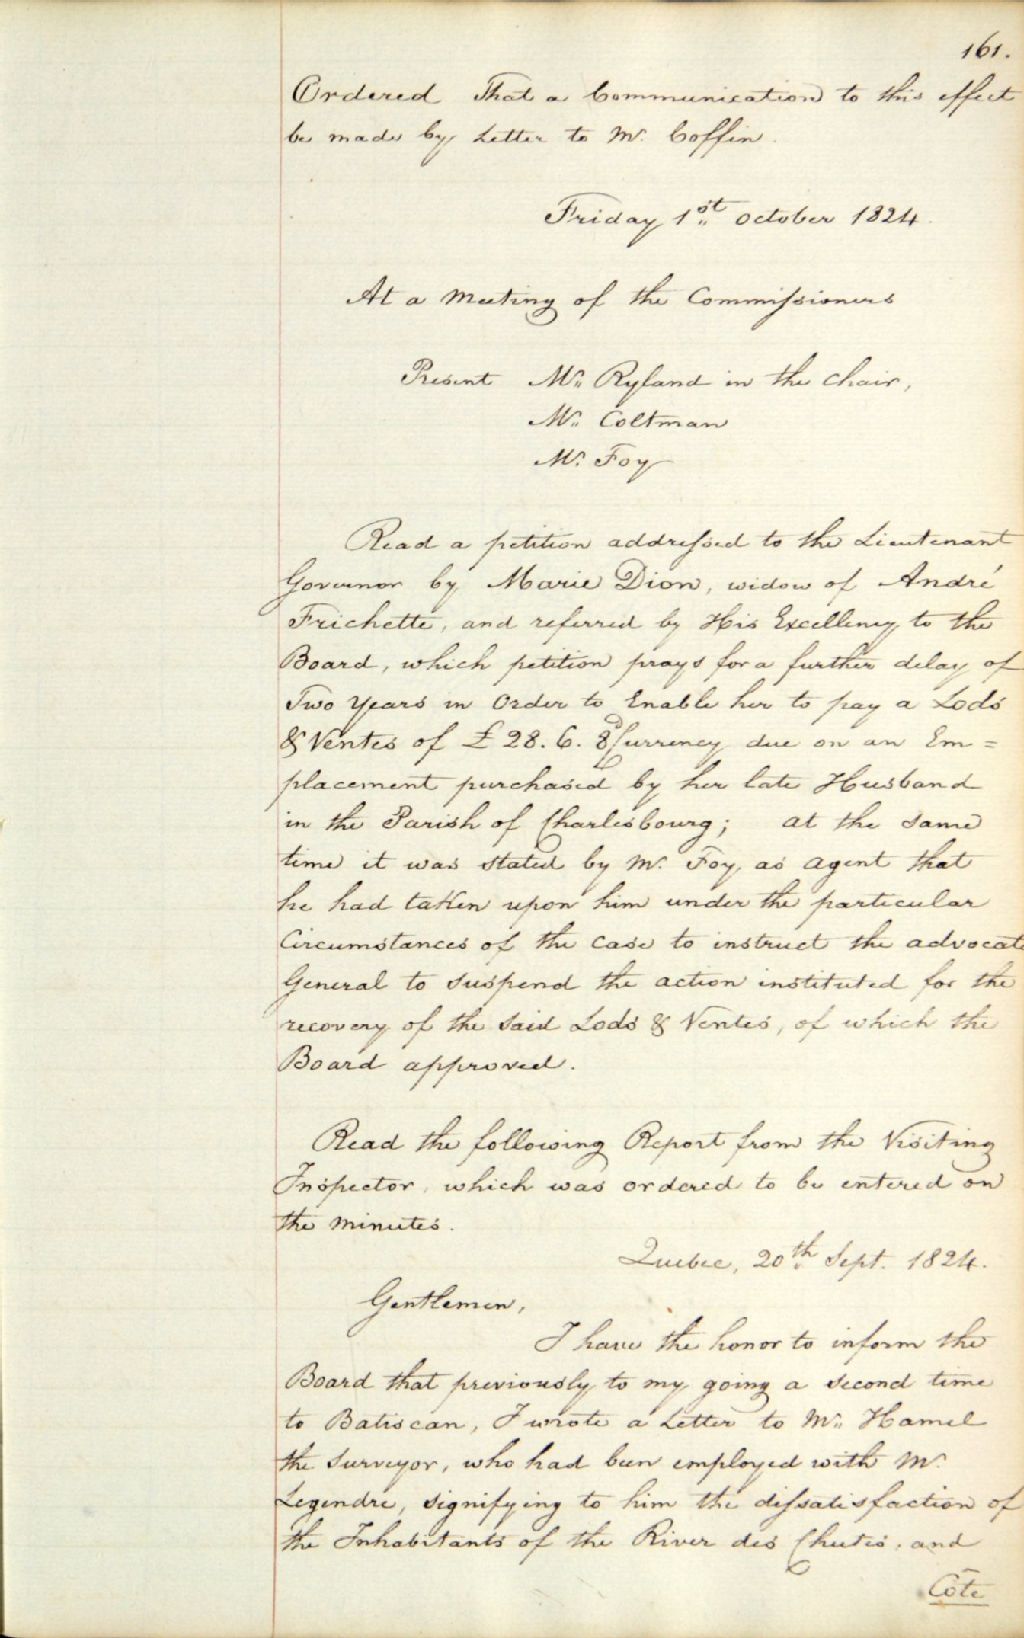 161.
Ordered That a Communication to this effect
be made by Letter to Mr. Coffin.
Friday 1st October 1824.
At a Meeting of the Commissioners
Present Mr. Ryland in the Chair,
Mr. Coltman
Mr. Foy
Read a petition addressed to the Lieutenant
Governor by Marie Dion, widow of André
Frichette, and referred by His Excellency to the
Board, which petition prays for a further delay of
Two Years in Order to Enable her to pay a Lods
& Ventes of £28. 6. 8d Currency due on an Em=
placement purchased by her late Husband
in the Parish of Charlesbourg; at the same
time it was stated by Mr. Foy, as Agent that
he had taken upon him under the particular
Circumstances of the case to instruct the advocate
General to suspend the action instituted for the
recovery of the said Lods & Ventes, of which the
Board approved.
Read the following Report from the Visiting
Inspector, which was ordered to be entered on
the minutes.
Quebec, 20th Sept. 1824.
Gentlemen,
I have the honor to inform the
Board that previously to my going a second time
to Batiscan, I wrote a Letter to Mr. Hamel
the Surveyor, who had been employed with Mr.
Legendre, signifying to him the dissatisfaction of
the Inhabitants of the River des Chutes, and
Côte